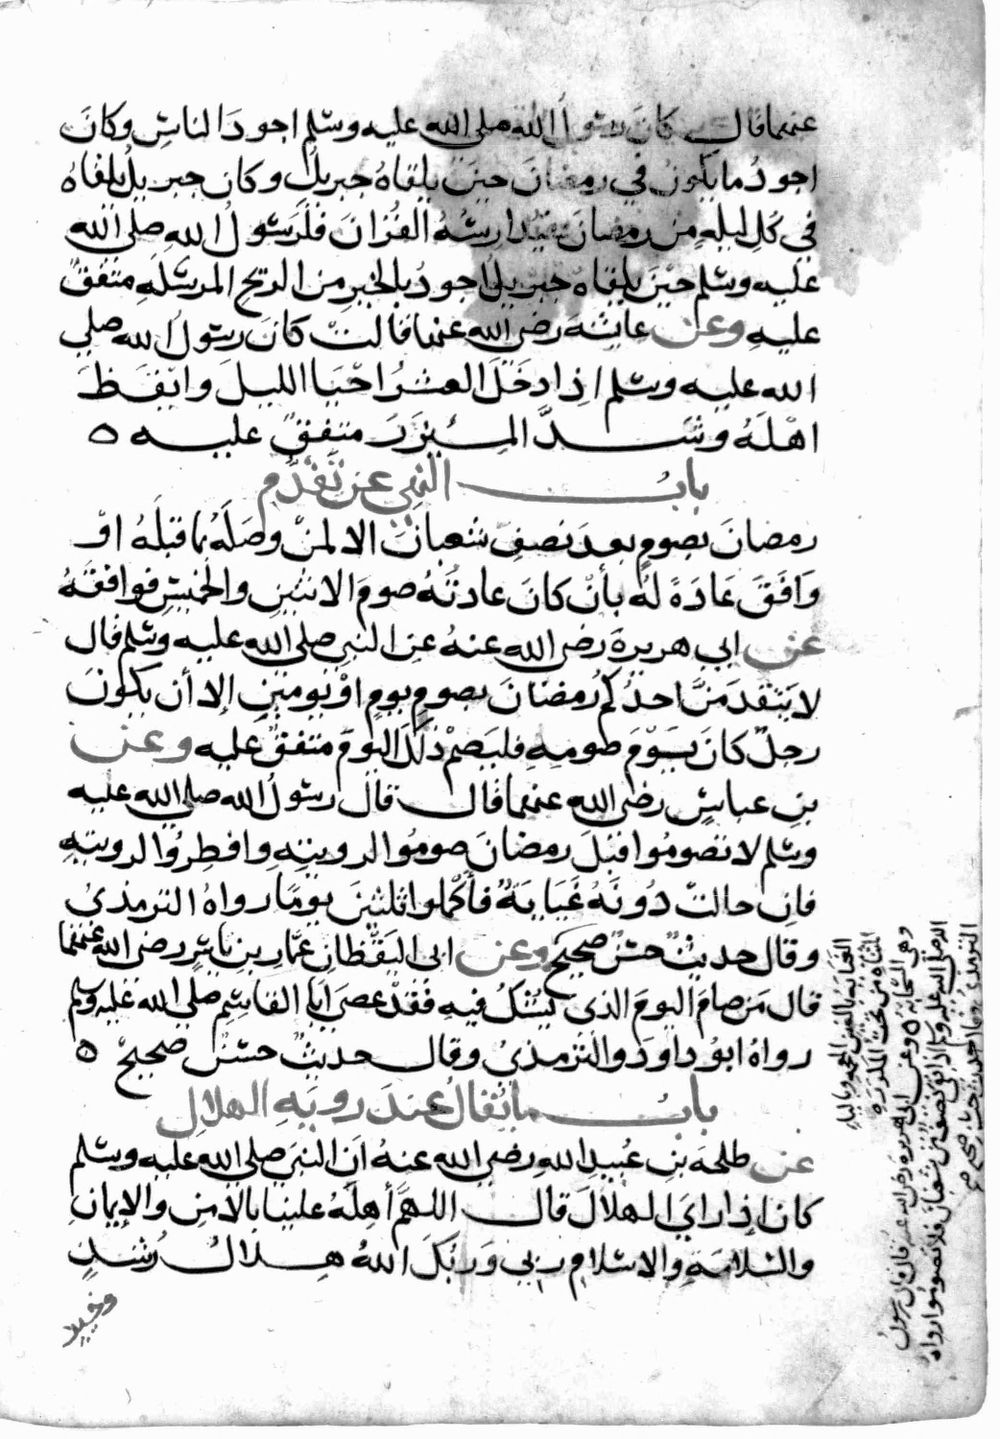 عنهما قال كانَ رسولُ الله صلى الله عليه وسلم اجودَ الناسِ وكانَ
اجودُ ما يكونُ في رمضانَ حينَ يلقاهُ جبريلُ وكان جبريلُ يلقاهُ
في كلِ ليلةٍ من رمضانَ فيُدارِسُهُ القُرانَ فلَرَسُولُ اللهِ صلى الله
عليه وسلم حيْنَ يلقاهُ جبْريلُ اجودُ بالخيرِ مِن الريحِ المرسَلَةِ متفقٌ
عليهِ وعن عايشةَ رضي الله عنها قالتْ كانَ رسولُ الله صلي
الله عليه وسلم اذا دخَلَ العشرُ احْيَا الليلَ وايْقَظَ
اهْلَهُ وشَدَّ المِئْزَرَ متفقٌ عليه ٥
بابُ النهي عن تقَدُّم
رمضانَ بصومٍ بعدَ نصفِ شعبانَ الا لمنْ وصَلَهُ بما قبلَهُ اوْ
وَافَقَ عَادَةً لَهُ بأنْ كانَ عادتُهُ صومَ الاثنينِ والخميسِ فوافقَهُ
عن ابي هريرةَ رضي الله عنهُ عن النبي صلى الله عليه وسلم قال
لا يَتقدمَنَّ احدُكم رُمضانَ بصومِ يومٍ اوْ يومَيْنِ إلا أن يكونَ
رجلٌ كانَ يَصومُ صومهِ فليَصُمْ ذلكَ اليومَ متفقٌ عليه وعن
بنِ عباسٍ رضي الله عنهما قال قال رسولُ الله صلى الله عليه
وسلم لا تصومُوا قبْلَ رمضانَ صومُوا لرويتِهِ وافطِرُوا لرويتِهِ
فإن حالتْ دُونَهُ غَيَايَةٌ فأكملوا ثلثينَ يومًا رواهُ الترمذيُ
وقال حديثٌ حسنٌ صحيحٌ وعن ابي اليَقْظانِ عمّارِ بنِ ياسِرٍ رضي الله عنهما
قال مَن صامَ اليومَ الذي يُشَكُّ فيهِ فقدْ عصَى أبا القاسِمِ صلي الله عليه وسلم
رواهُ ابوُ داودَ والترمذيُ وقال حديثٌ حسنٌ صحيحٌ ٥
بابُ ما يُقالُ عندَ رويةِ الهلالِ
عن طلحةَ بنِ عُبيدِ اللهِ رضي الله عنهُ أن النبيَ صلي الله عليه وسلم
كانَ إذا رايَ الهلالَ قال اللهمَّ أهِلَّهُ علينا بالأمنِ والإيمانِ
والسَّلامَةِ والاسلامِ ربي وَربُكَ اللهُ هِلالُ رُشدٍ
وخيرٍ
الغياية بالغين المعجمة وبالياءِ
المثناة من تحت المكررة
وهي السحابة ٥ وعن ابي هريرة رضي الله عنه قال قال رسولُ
الله صلى الله عليه وسلم اذا بقي نصف من شعبان فلا تصوموا رواه
الترمذي وقال حديث حسن صحيح صح